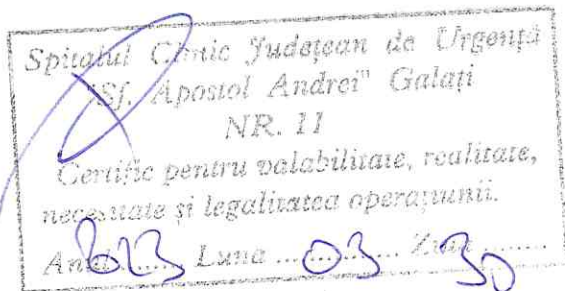 Spitalul Clinic Județean de Urgență
"Sf. Apostol Andrei" Galați
NR. 11
Certific pentru valabilitate, realitate,
necesitate și legalitatea operațiunii.
Anul 2023 Luna 03 Ziua 30